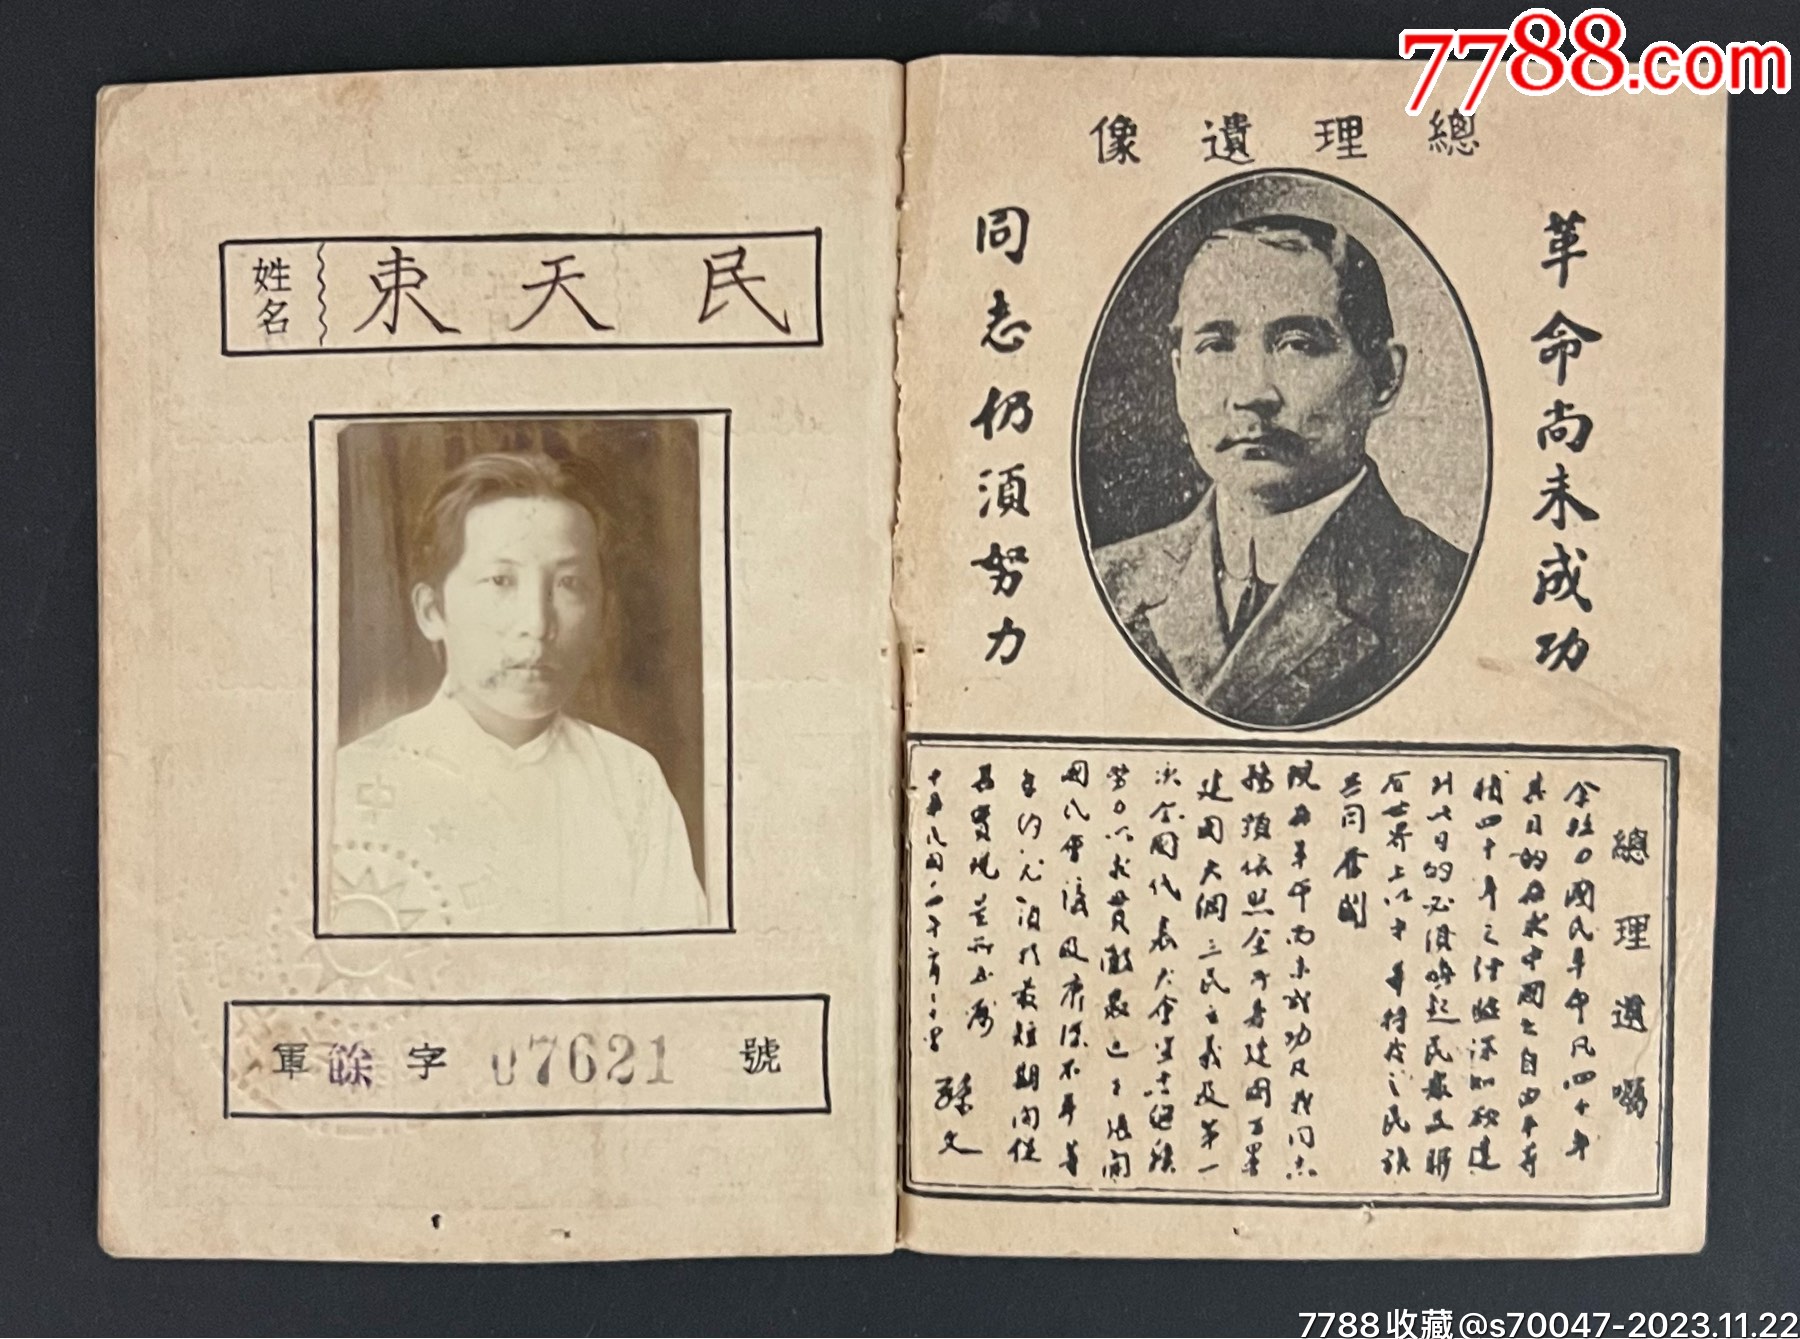 7788.com
姓名 束天民
軍餘字07621號
總理遺像
革命尚未成功
同志仍須努力
總理遺囑
余致力國民革命凡四十年
其目的在求中國之自由平等
積四十年之經驗深知欲達
到此目的必須喚起民衆及聯
合世界上以平等待我之民族
共同奮鬥
現在革命尚未成功凡我同志
務須依照余所著建國方畧
建國大綱三民主義及第一
次全國代表大會宣言繼續
努力以求貫澈最近主張開
國民會議及廢除不平等
條約尤須於最短期間促
其實現是所至囑
中華民國十四年二月二十四日
孫文
中
7788收藏@s70047-2023.11.22